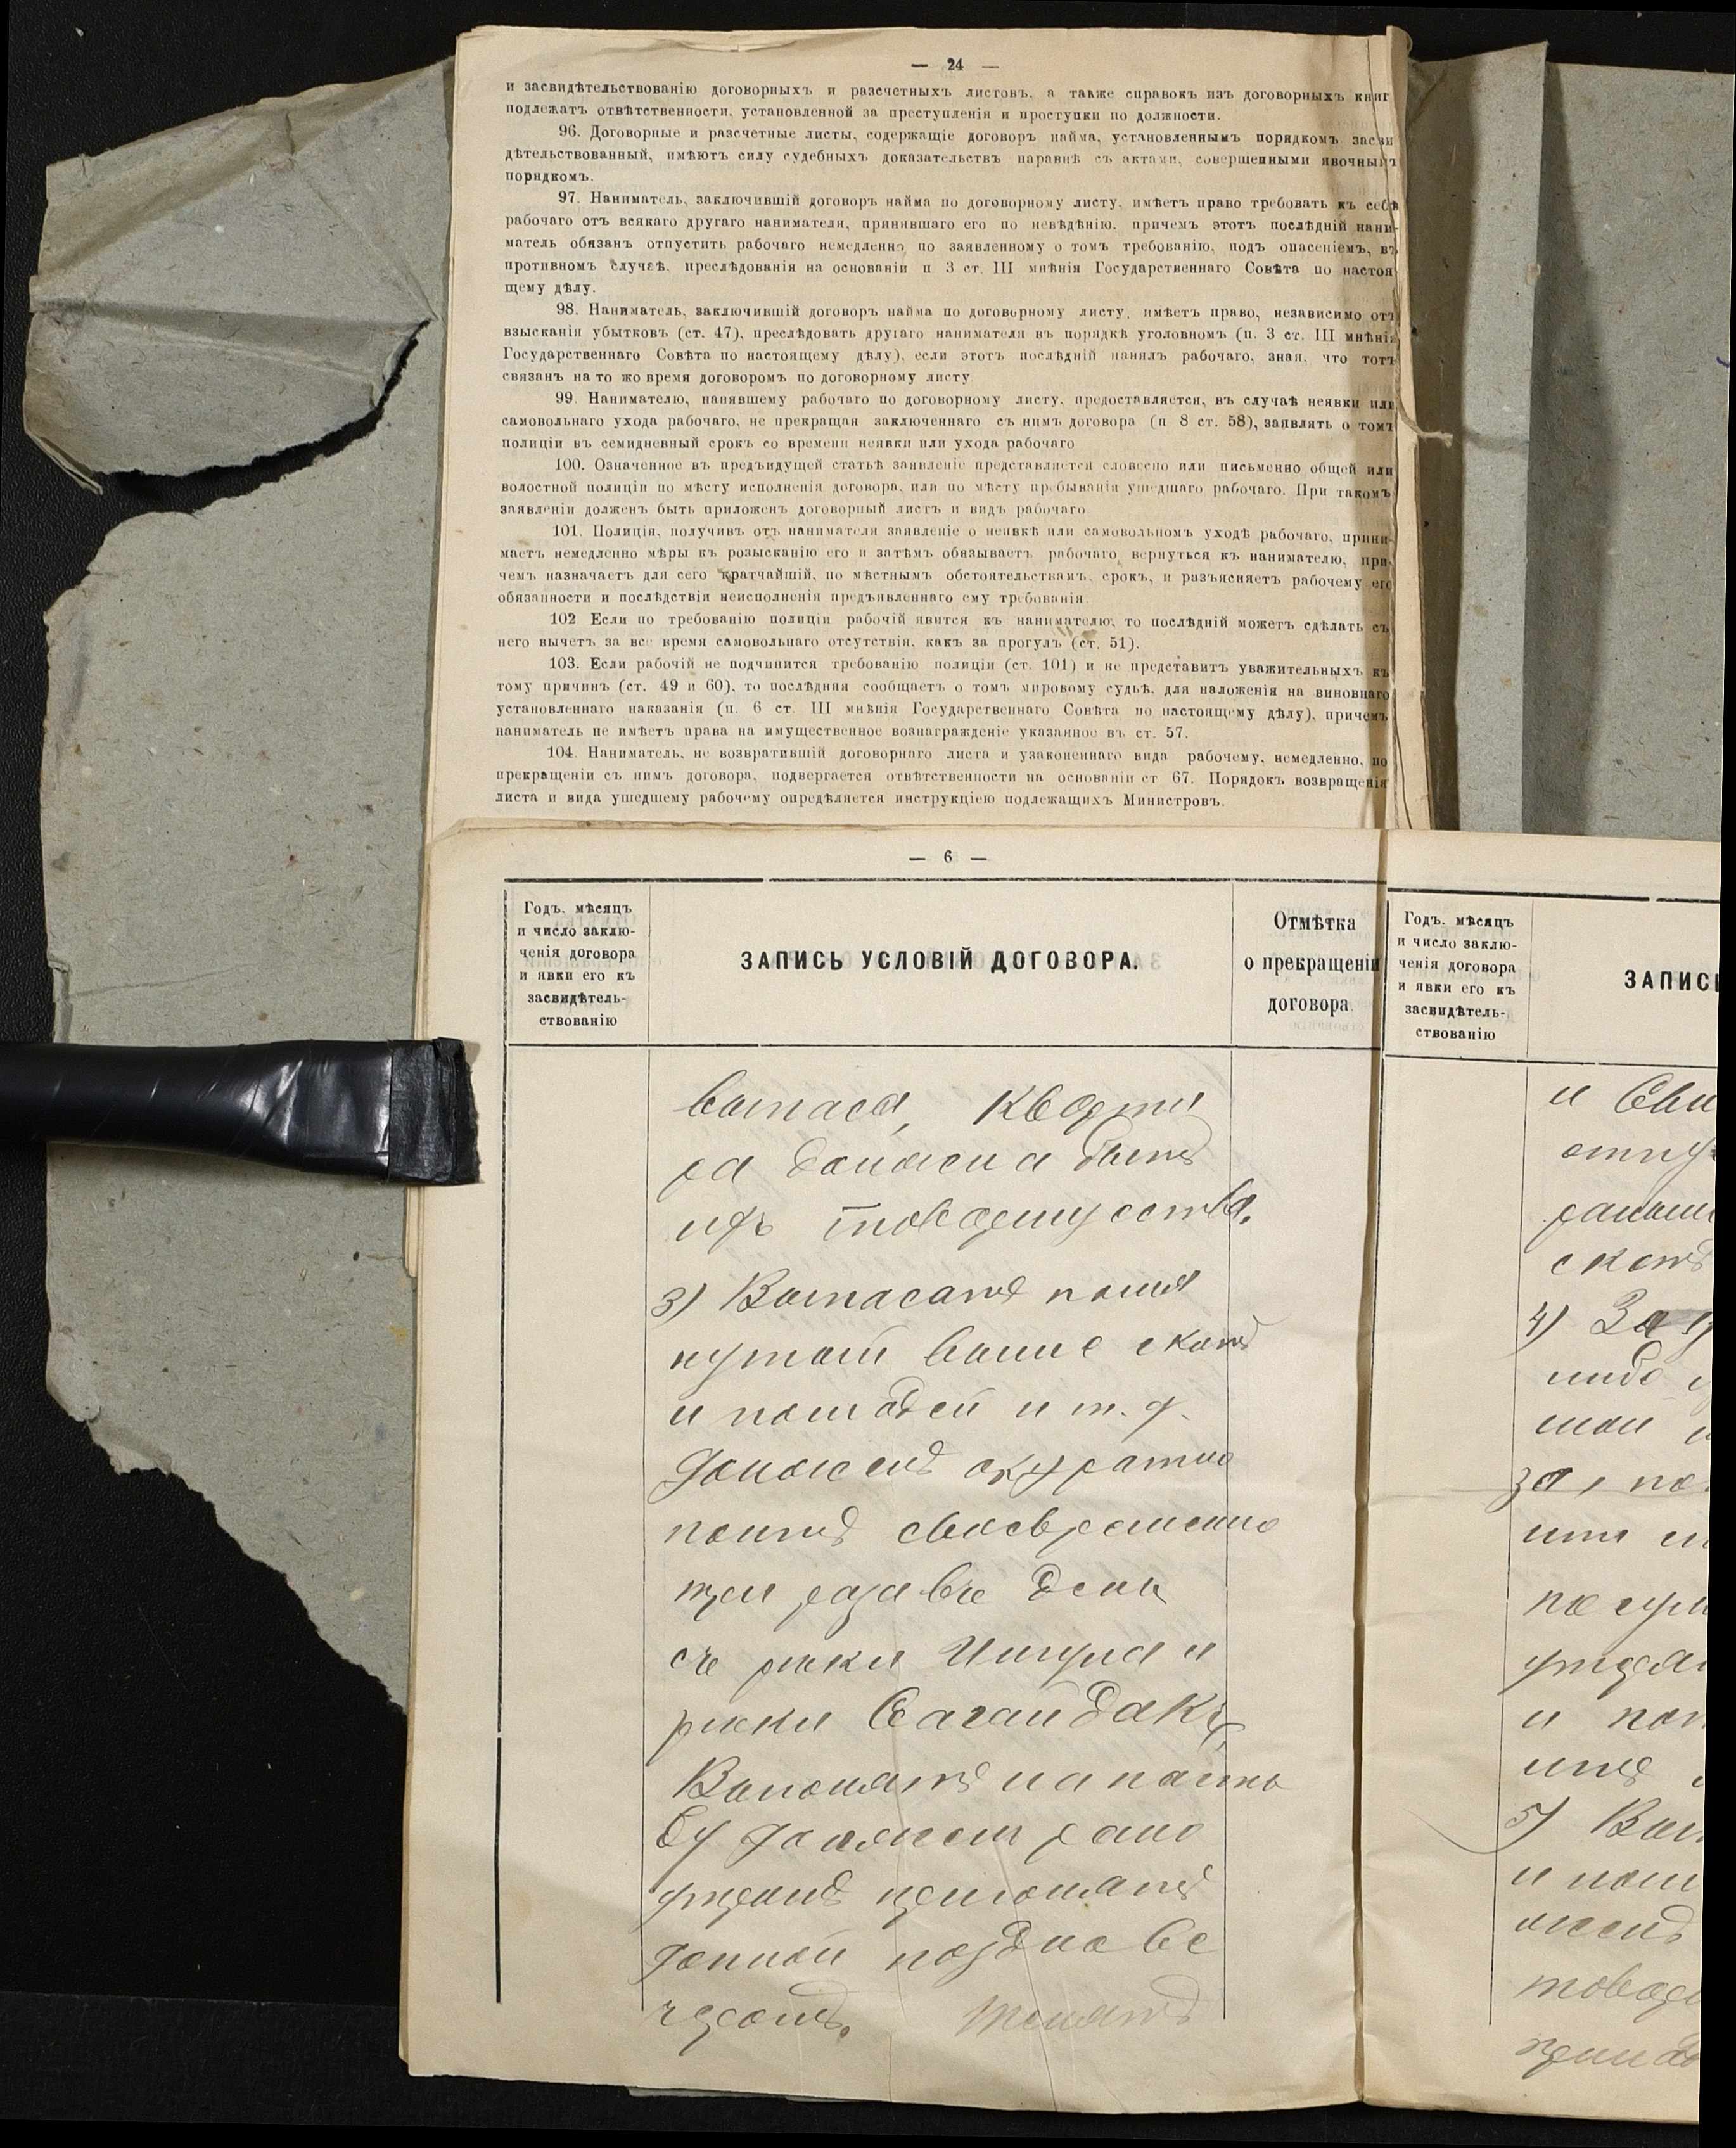 — 24 —
и засвидѣтельствованію договорныхъ и разсчетныхъ листовъ, а также справокъ изъ договорныхъ книг
подлежатъ отвѣтственности, установленной за преступленія и проступки по должности.
96. Договорные и разсчетные листы, содержащіе договоръ найма, установленнымъ порядкомъ засви
дѣтельствованный, имѣютъ силу судебныхъ доказательствъ наравнѣ съ актами, совершенными явочнымъ
порядкомъ.
97. Наниматель, заключившій договоръ найма по договорному листу, имѣетъ право требовать къ себѣ
рабочаго отъ всякаго другаго нанимателя, принявшаго его по невѣдѣнію, причемъ этотъ послѣдній нани-
матель обязанъ отпустить рабочаго немедленно, по заявленному о томъ требованію, подъ опасеніемъ, въ
противномъ случаѣ, преслѣдованія на основаніи п 3 ст. III мнѣнія Государственнаго Совѣта по настоя
щему дѣлу.
98. Наниматель, заключившій договоръ найма по договорному листу, имѣетъ право, независимо отъ
взысканія убытковъ (ст. 47), преслѣдовать другаго нанимателя въ порядкѣ уголовномъ (п. 3 ст. III мнѣнія
Государственнаго Совѣта по настоящему дѣлу), если этотъ послѣдній нанялъ рабочаго, зная, что тотъ
связанъ на то жо время договоромъ по договорному листу
99. Нанимателю, нанявшему рабочаго по договорному листу, предоставляется, въ случаѣ неявки или
самовольнаго ухода рабочаго, не прекращая заключеннаго съ нимъ договора (п 8 ст. 58), заявлять о томъ
полиціи въ семидневный срокъ со времени неявки или ухода рабочаго
100. Означенное въ предъидущей статьѣ заявленіе представляется словесно или письменно общей или
волостной полиціи по мѣсту исполненія договора, или по мѣсту пребыванія ушедшаго рабочаго. При такомъ
заявленіи долженъ быть приложенъ договорный листъ и видъ рабочаго
101. Полиція, получивъ отъ нанимателя заявленіе о неявкѣ или самовольномъ уходѣ рабочаго, прини-
маетъ немедленно мѣры къ розысканію его и затѣмъ обязываетъ рабочаго вернуться къ нанимателю, при-
чемъ назначаетъ для сего кратчайшій, по мѣстнымъ обстоятельствамъ, срокъ, и разъясняетъ рабочему его
обязанности и послѣдствія неисполненія предъявленнаго ему требованія.
102 Если по требованію полиціи рабочій явится къ нанимателю, то послѣдній можетъ сдѣлать съ
него вычетъ за все время самовольнаго отсутствія, какъ за прогулъ (ст. 51).
103. Если рабочій не подчинится требованію полиціи (ст. 101) и не представитъ уважительныхъ къ
тому причинъ (ст. 49 и 60), то послѣдняя сообщаетъ о томъ мировому судьѣ, для наложенія на виновнаго
установленнаго наказанія (п. 6 ст. III мнѣнія Государственнаго Совѣта по настоящему дѣлу), причемъ
наниматель не имѣетъ права на имущественное вознагражденіе указанное въ ст. 57.
104. Наниматель, не возвратившій договорнаго листа и узаконеннаго вида рабочему, немедленно, по
прекращеніи съ нимъ договора, подвергается отвѣтственности на основаніи ст 67. Порядокъ возвращенія
листа и вида ушедшему рабочему опредѣляется инструкціею подлежащихъ Министровъ.
— 6 —
Годъ, мѣсяцъ
и число заклю-
ченія договора
и явки его къ
засвидѣтель-
ствованію
ЗАПИСЬ УСЛОВІЙ ДОГОВОРА.
Отмѣтка
о прекращеніи
договора
ватася, Кварти
ра должна быть
изъ товарищества.
3)
нутой выше скотъ
и лошадей и т. д.
должен акуратно
поить своевременно
три раза въ день
съ реки Ишула и
реки Сагайдакъ,
Выгонять на пасть
бу должен рано
утромъ пригонять
домой поздно ве
чером.
Годъ, мѣсяцъ
и число заклю-
ченія договора
и явки его къ
засвидѣтель-
ствованію
ЗАПИС
и Сви
скотъ
4) За
либо
5)